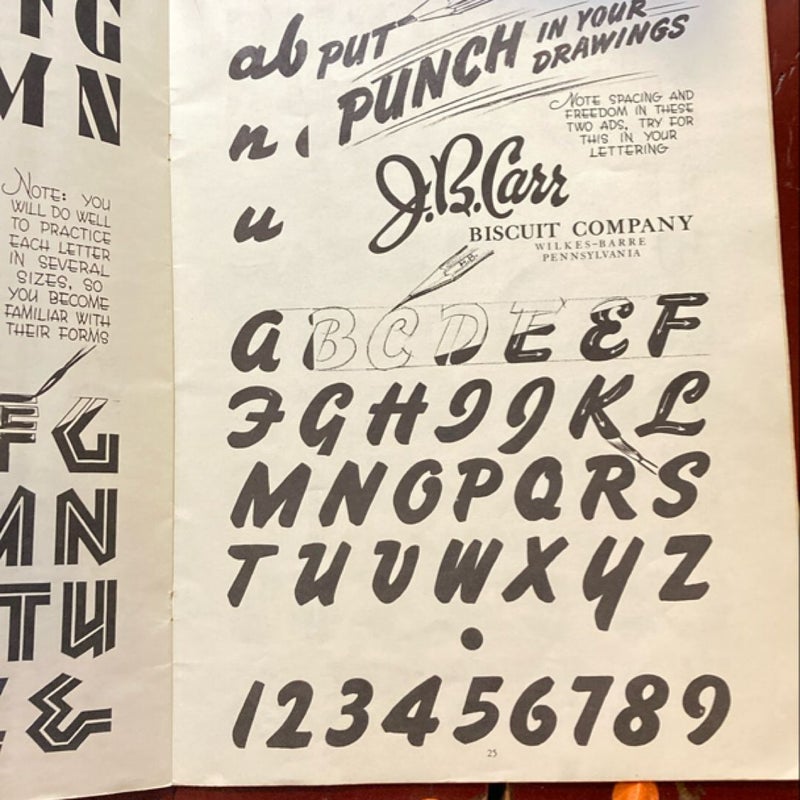 F G
M N
NOTE: YOU
WILL DO WELL
TO PRACTICE
EACH LETTER
IN SEVERAL
SIZES, SO
YOU BECOME
FAMILIAR WITH
THEIR FORMS
F G
M N
T U
&
ab PUT
PUNCH IN YOUR
DRAWINGS
n
u
NOTE SPACING AND
FREEDOM IN THESE
TWO ADS, TRY FOR
THIS IN YOUR
LETTERING
J.B. Carr
BISCUIT COMPANY
WILKES-BARRE
PENNSYLVANIA
H.B.
A B C D E E F
F G H I J K L
M N O P Q R S
T U V W X Y Z
1 2 3 4 5 6 7 8 9
25